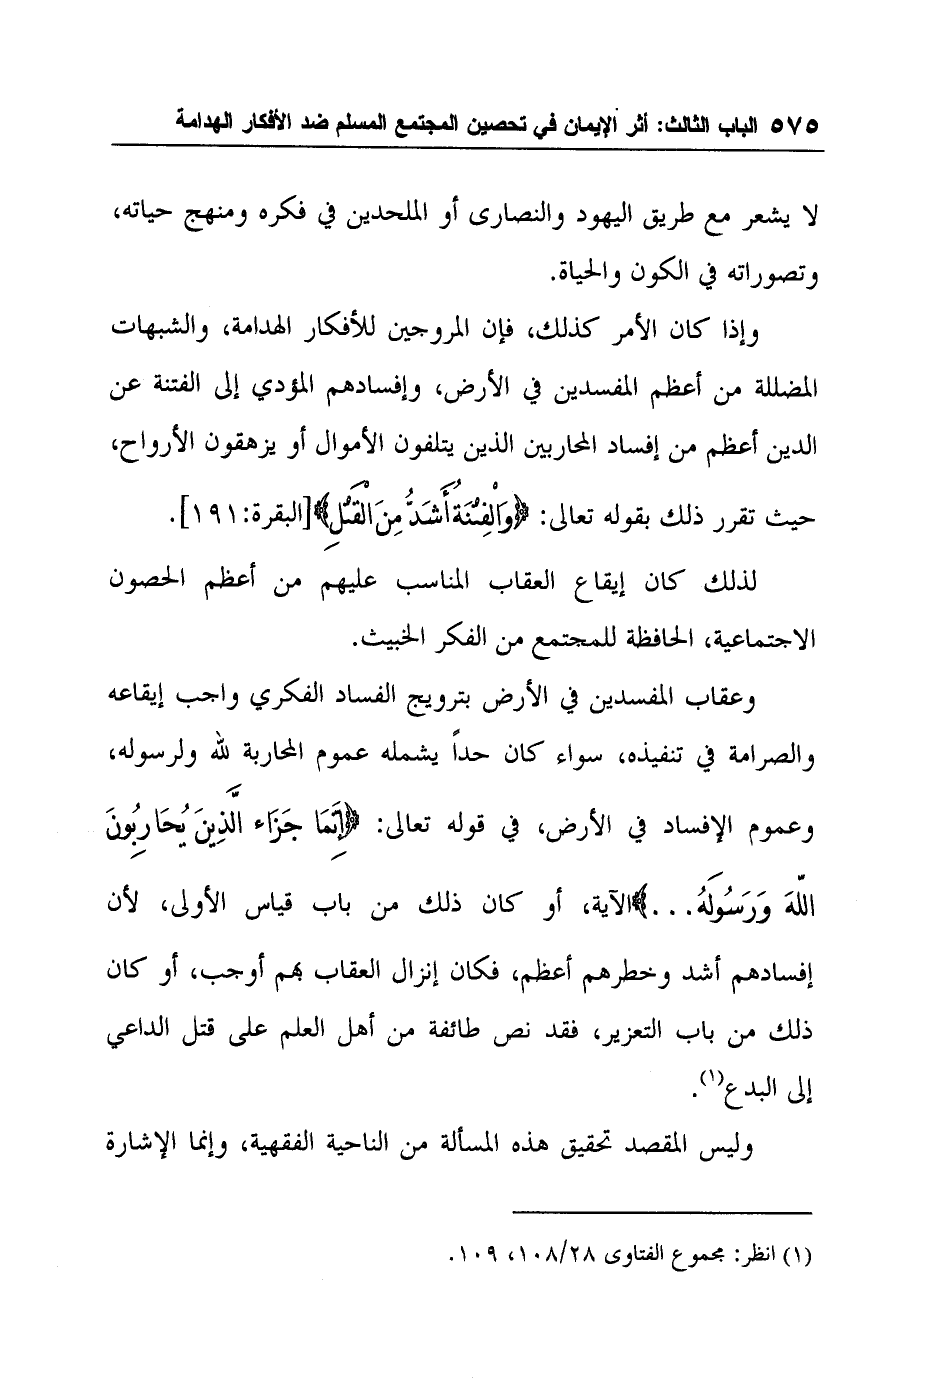 ٥٧٥ الباب الثالث: أثر الإيمان في تحصين المجتمع المسلم ضد الأفكار الهدامة
لا يشعر مع طريق اليهود والنصارى أو الملحدين في فكره ومنهج حياته،
وتصوراته في الكون والحياة.
وإذا كان الأمر كذلك، فإن المروجين للأفكار الهدامة، والشبهات
المضللة من أعظم المفسدين في الأرض، وإفسادهم المؤدي إلى الفتنة عن
الدين أعظم من إفساد المحاربين الذين يتلفون الأموال أو يزهقون الأرواح،
حيث تقرر ذلك بقوله تعالى: ﴿وَالْفِتْنَةُ أَشَدُّ مِنَ الْقَتْلِ﴾[البقرة:١٩١].
لذلك كان إيقاع العقاب المناسب عليهم من أعظم الحصون
الاجتماعية، الحافظة للمجتمع من الفكر الخبيث.
وعقاب المفسدين في الأرض بترويج الفساد الفكري واجب إيقاعه
والصرامة في تنفيذه، سواء كان حداً يشمله عموم المحاربة لله ولرسوله،
وعموم الإفساد في الأرض، في قوله تعالى: ﴿إِنَّمَا جَزَاء الَّذِينَ يُحَارِبُونَ
اللّهَ وَرَسُولَهُ...﴾الآية، أو كان ذلك من باب قياس الأولى، لأن
إفسادهم أشد وخطرهم أعظم، فكان إنزال العقاب بهم أوجب، أو كان
ذلك من باب التعزير، فقد نص طائفة من أهل العلم على قتل الداعي
إلى البدع(١).
وليس المقصد تحقيق هذه المسألة من الناحية الفقهية، وإنما الإشارة
(١) انظر: مجموع الفتاوى ١٠٨/٢٨، ١٠٩.